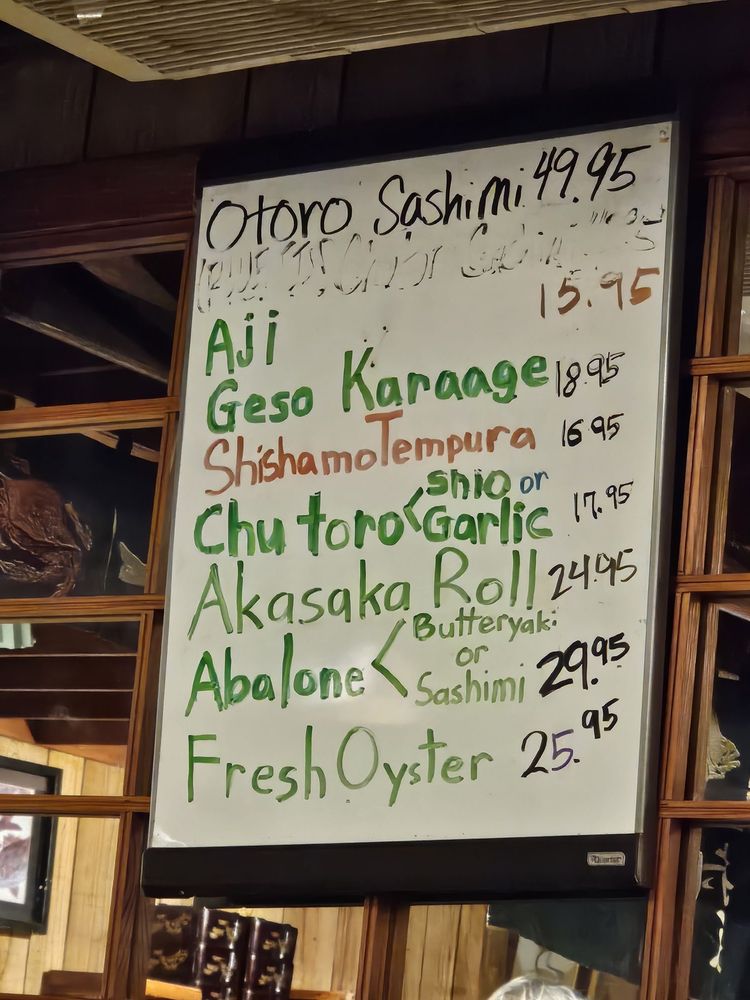 Otoro Sashimi 49.95
15.95
Aji
Geso Karaage 18.95
Shishamo Tempura 16.95
Chu toro < Shio or Garlic 17.95
Akasaka Roll 24.95
Abalone < Butteryaki or Sashimi 29.95
Fresh Oyster 25.95
Quartet